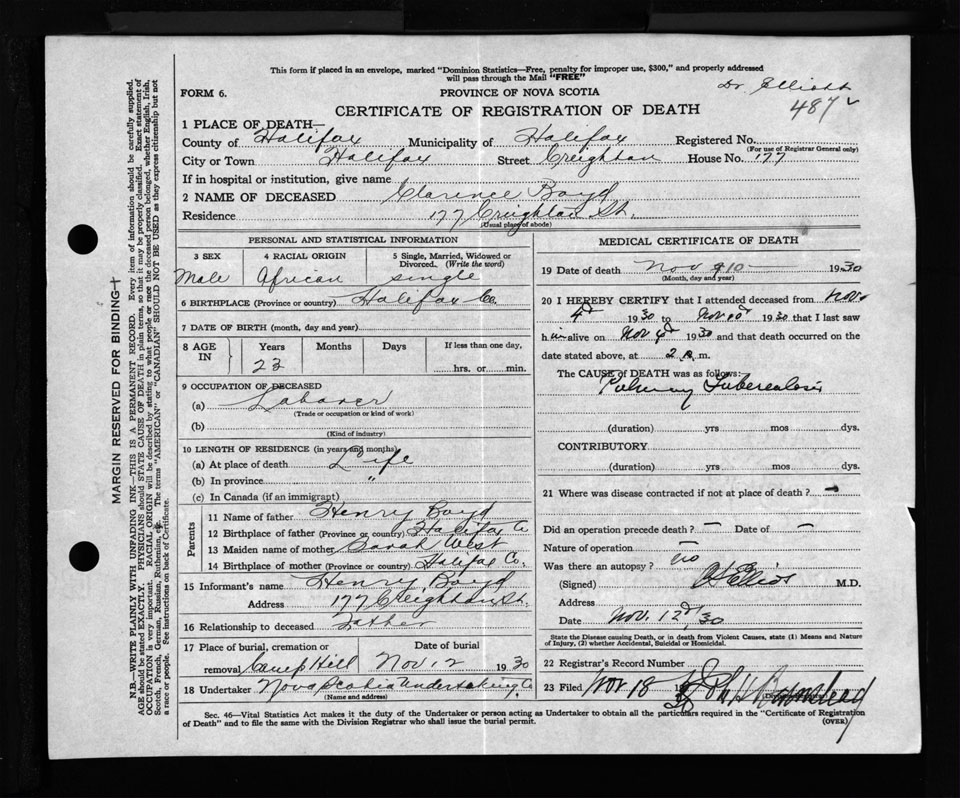 This form if placed in an envelope, marked "Dominion Statistics—Free, penalty for improper use, $300," and properly addressed
will pass through the Mail "FREE"
Dr. Elliott
FORM 6.
PROVINCE OF NOVA SCOTIA
487
CERTIFICATE OF REGISTRATION OF DEATH
1 PLACE OF DEATH—
County of Halifax Municipality of Halifax Registered No.
(For use of Registrar General only)
City or Town Halifax Street Creighton House No. 177
If in hospital or institution, give name
2 NAME OF DECEASED Clarence Boyd
Residence 177 Creighton St.
(Usual place of abode)
PERSONAL AND STATISTICAL INFORMATION
3 SEX 4 RACIAL ORIGIN 5 Single, Married, Widowed or
Divorced. (Write the word)
Male African single
6 BIRTHPLACE (Province or country) Halifax Co.
7 DATE OF BIRTH (month, day and year)
8 AGE IN Years Months Days If less than one day,
23 hrs. or min.
9 OCCUPATION OF DECEASED
(a) Laborer
(Trade or occupation or kind of work)
(b)
(Kind of industry)
10 LENGTH OF RESIDENCE (in years and months)
(a) At place of death Life
(b) In province "
(c) In Canada (if an immigrant)
Parents
11 Name of father Henry Boyd
12 Birthplace of father (Province or country) Halifax Co
13 Maiden name of mother Sarah West
14 Birthplace of mother (Province or country) Halifax Co.
15 Informant's name Henry Boyd
Address 177 Creighton St.
16 Relationship to deceased Father
17 Place of burial, cremation or Date of burial
removal Camp Hill Nov 12 1930
18 Undertaker Nova Scotia Undertaking Co
(Name and address)
MEDICAL CERTIFICATE OF DEATH
19 Date of death Nov 10 1930
(Month, day and year)
20 I HEREBY CERTIFY that I attended deceased from Nov.
4th 1930 to Nov 10th 1930 that I last saw
him alive on Nov 9th 1930 and that death occurred on the
date stated above, at 2 a. m.
The CAUSE of DEATH was as follows:
Pulmonary Tuberculosis
(duration) yrs mos dys.
CONTRIBUTORY
(duration) yrs mos dys.
21 Where was disease contracted if not at place of death? —
Did an operation precede death? — Date of —
Nature of operation —
Was there an autopsy? no
(Signed) Elliott M.D.
Address
Date Nov. 12th, 30
State the Disease causing Death, or in death from Violent Causes, state (1) Means and Nature
of Injury, (2) whether Accidental, Suicidal or Homicidal.
22 Registrar's Record Number
23 Filed Nov 18 1930
Sec. 46—Vital Statistics Act makes it the duty of the Undertaker or person acting as Undertaker to obtain all the particulars required in the "Certificate of Registration
of Death" and to file the same with the Division Registrar who shall issue the burial permit.
(OVER)
MARGIN RESERVED FOR BINDING
N.B.—WRITE PLAINLY WITH UNFADING INK—THIS IS A PERMANENT RECORD. Every item of information should be carefully supplied.
AGE should be stated EXACTLY. PHYSICIANS should STATE CAUSE OF DEATH in plain terms, so that it may be properly classified. Exact statement of
OCCUPATION is very important. RACIAL ORIGIN will be described by stating to what people or race the deceased person belonged, whether English, Irish,
Scotch, French, German, Russian, Ruthenian, etc. The terms "AMERICAN" or "CANADIAN" SHOULD NOT BE USED as they express citizenship but not
a race or people. See instructions on back of Certificate.